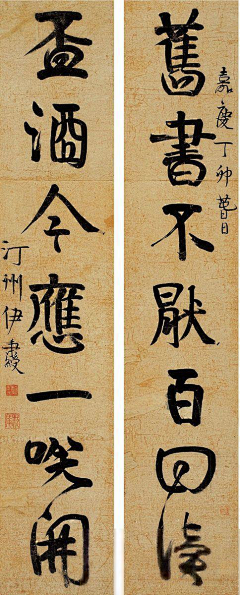 嘉慶丁卯日
舊書不猒百回讀
盃酒今應一咲開
汀州伊秉綬